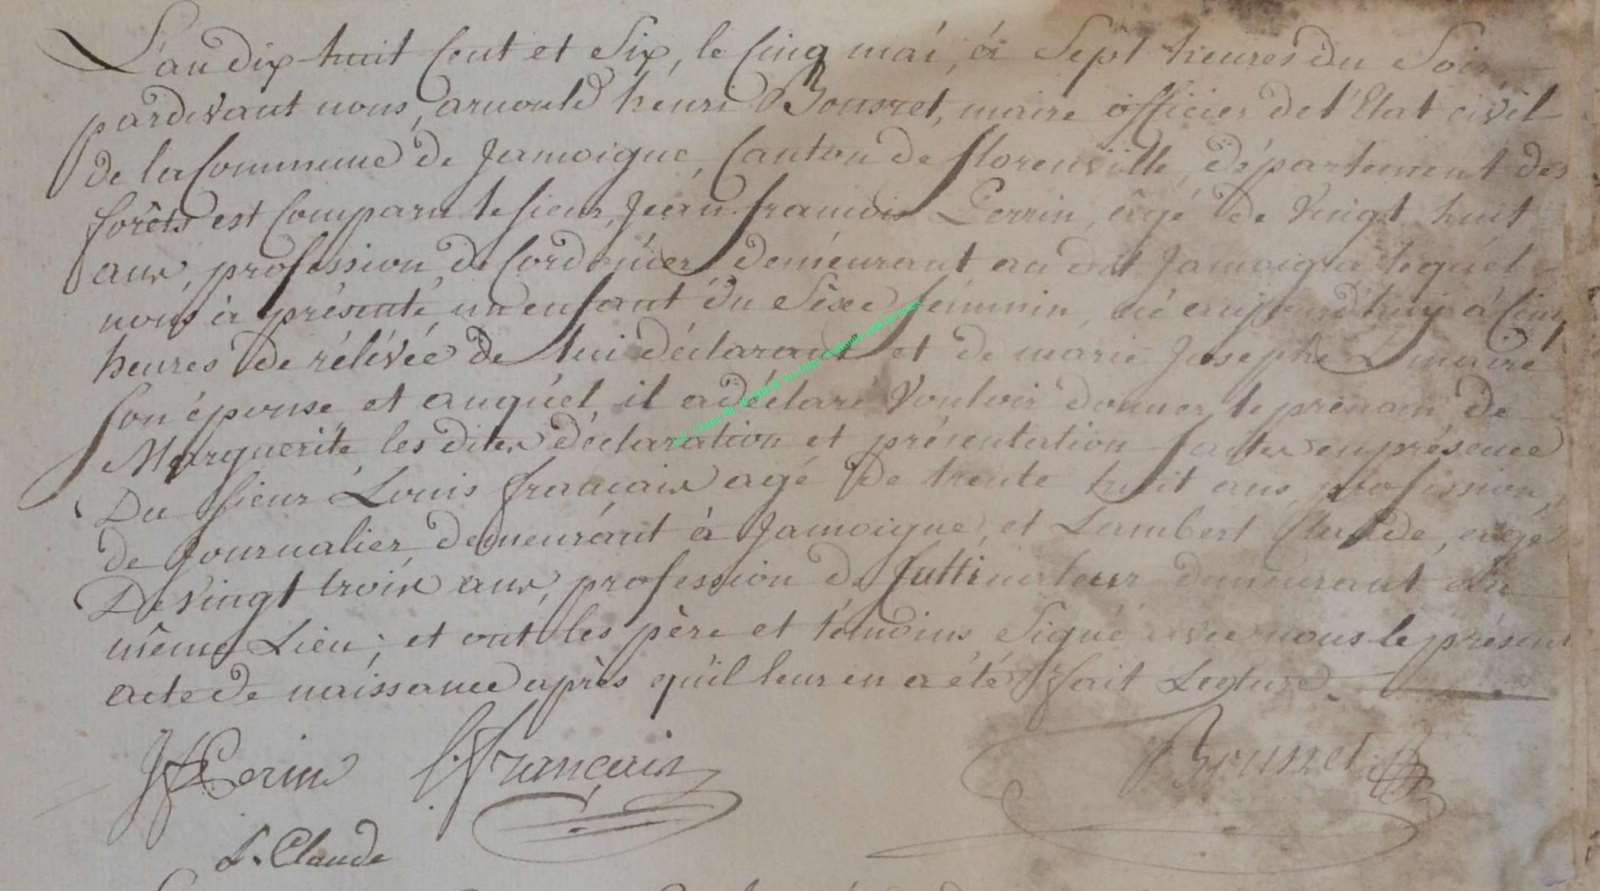 L'an dix huit Cent et Six, le Cinq mai, à Sept heures du Soir
pardevant nous, arnould henri Bousret, maire officier de l'Etat civil
de la Commune de Jamoigne, Canton de florenville, département des
forêts est Comparu le sieur, Jean françois Perrin, âgé de Vingt huit
ans, profession de Cordonier, demeurant au dit Jamoigne lequel
nous à présenté un enfant du Sèxe féminin, né aujourd'huy à Cinq
heures de rélévée de lui déclarant et de marie Josephe Lemaire
son épouse et auquél il a déclaré Vouloir donner le prénom de
Marguerite les dites déclaration et présentation faites en présence
Du sieur Louis français agé de trente huit ans profession
de Journalier, demeurant à Jamoigne, et Lambert Claude, agé
De Vingt trois ans, profession de demeurant au
même Lieu; et ont les père et témoins Signé avec nous le présent
acte de naissance après qu'il leur en a été fait Lecture.
JF Perin L. Français Bousret
L. Claude